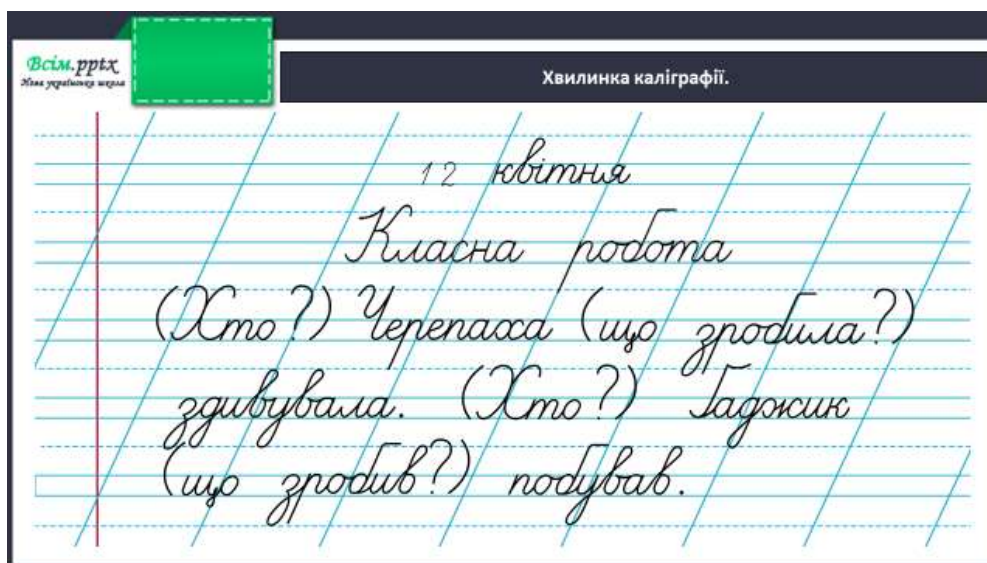 Всім.pptx
Нова українська школа
Хвилинка каліграфії.
12 квітня
Класна робота
(Хто?) Черепаха (що зробила?)
здивувала. (Хто?) Гаджик
(що зробив?) побував.